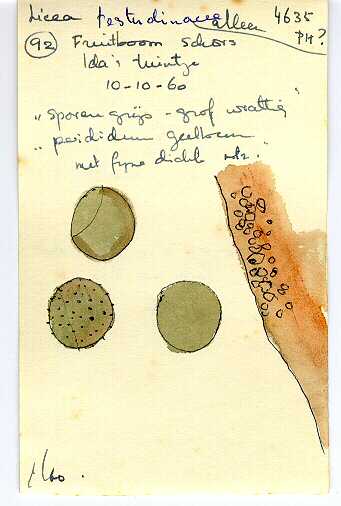 Licea testudinacea alleen 4635
92 Fruitboom schors PM?
Ida's tuintje
10-10-60
"sporen grijs - grof wrattig"
"peridium geelbruin
met fyne